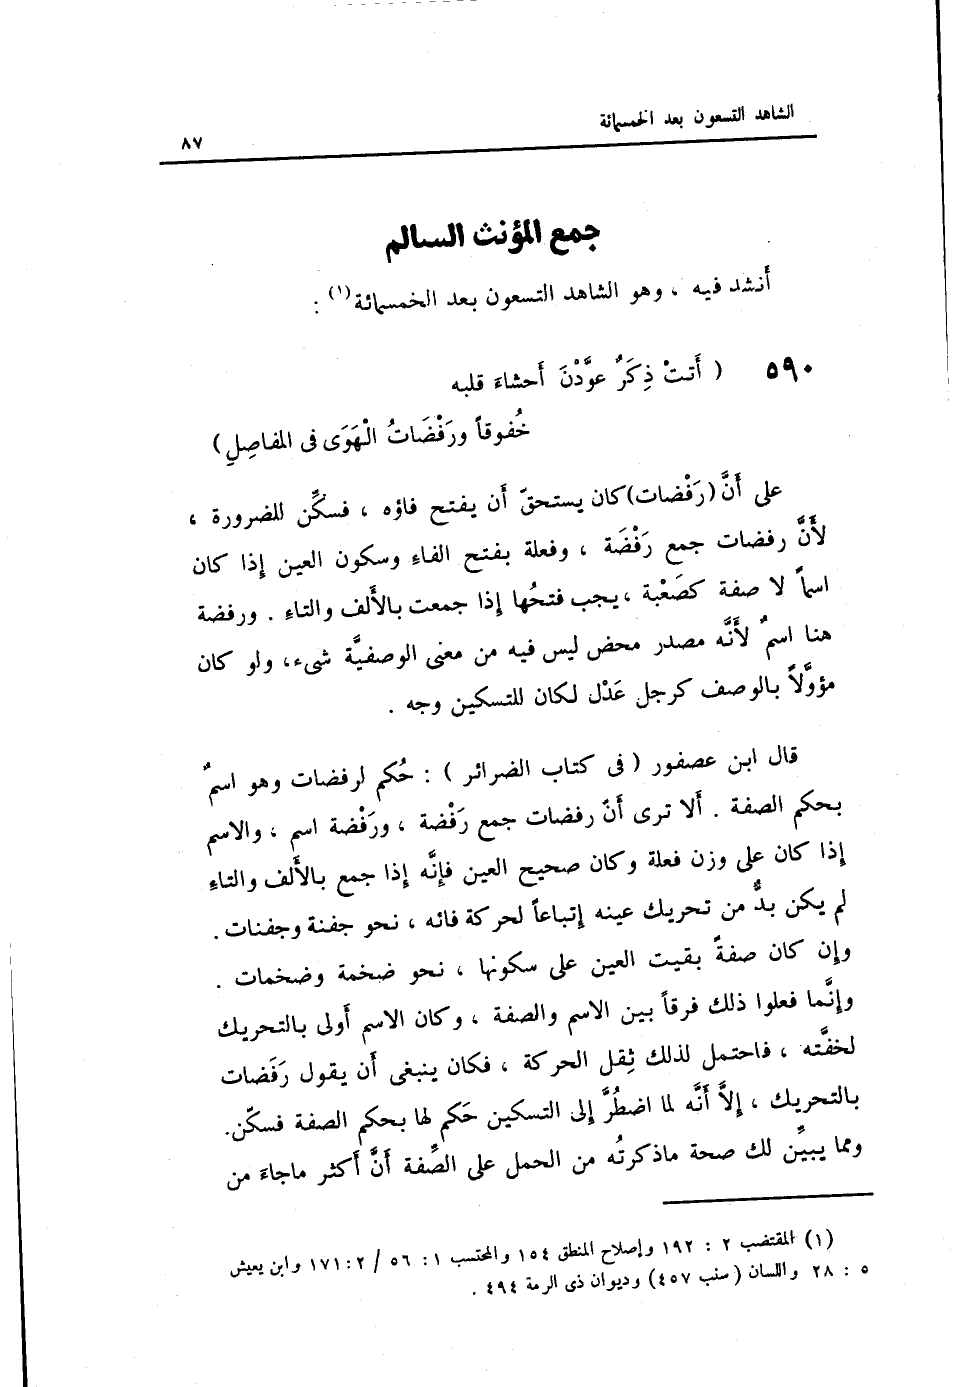 الشاهد التسعون بعد الخمسمائة
٨٧
جمع المؤنث السالم
أَنشد فيه ، وهو الشاهد التسعون بعد الخمسمائة (١) :
٥٩٠ ( أَتتْ ذِكَرٌ عوَّدْنَ أَحشاءَ قلبه
خُفوقاً ورَفْضَاتُ الْهَوَى فى المفاصِلِ )
على أَنَّ (رَفْضات) كان يستحقّ أَن يفتح فاؤه ، فسكِّن للضرورة ،
لأَنَّ رفضات جمع رَفْضَة ، وفعلة بفتح الفاءِ وسكون العين إِذا كان
اسماً لا صفة كصَعْبة ، يجب فتحُها إِذا جمعت بالأَلف والتاءِ . ورفضة
هنا اسمٌ لأَنَّه مصدر محض ليس فيه من معنى الوصفيَّة شىء ، ولو كان
مؤوَّلاً بالوصف كرجل عَدْل لكان للتسكين وجه .
قال ابن عصفور ( فى كتاب الضرائر ) : حُكم لرفضات وهو اسمٌ
بحكم الصفة . أَلا ترى أَنّ رفضات جمع رَفْضة ، ورَفْضة اسم ، والاسم
إِذا كان على وزن فعلة وكان صحيح العين فإِنَّه إِذا جمع بالأَلف والتاءِ
لم يكن بدٌّ من تحريك عينه إِتباعاً لحركة فائه ، نحو جفنة وجفنات .
وإِن كان صفةً بقيت العين على سكونها ، نحو ضخمة وضخمات .
وإِنَّما فعلوا ذلك فرقاً بين الاسم والصفة ، وكان الاسم أَولى بالتحريك
لخفَّته ، فاحتمل لذلك ثِقل الحركة ، فكان ينبغى أَن يقول رَفَضات
بالتحريك ، إِلاَّ أَنَّه لما اضطُرَّ إِلى التسكين حَكم لها بحكم الصفة فسكّن.
ومما يبيِّن لك صحة ماذكرتُه من الحمل على الصِّفة أَنَّ أَكثر ماجاءَ من
(١) المقتضب ٢ : ١٩٢ وإصلاح المنطق ١٥٤ والمحتسب ١ : ٥٦ / ٢ : ١٧١ وابن يعيش
٥ : ٢٨ واللسان (سنب ٤٥٧) وديوان ذى الرمة ٤٩٤ .